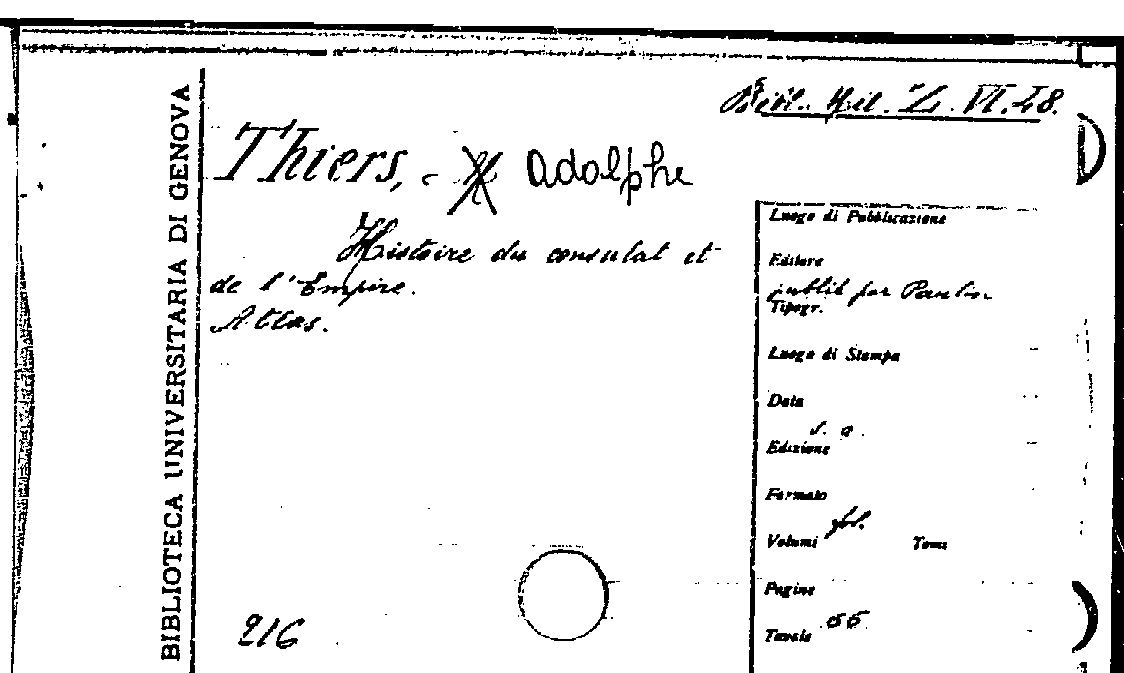 BIBLIOTECA UNIVERSITARIA DI GENOVA
Bibl. Mil. Z. VI. 48.
Thiers, Adolphe
Histoire du consulat et
de l'Empire.
Atlas.
216
Luogo di Pubblicazione
Editore
publié par Paulin
Tipogr.
Luogo di Stampa
Data
s. a.
Edizione
Formato
fol.
Volumi Tomi
Pagine
Tavole 66